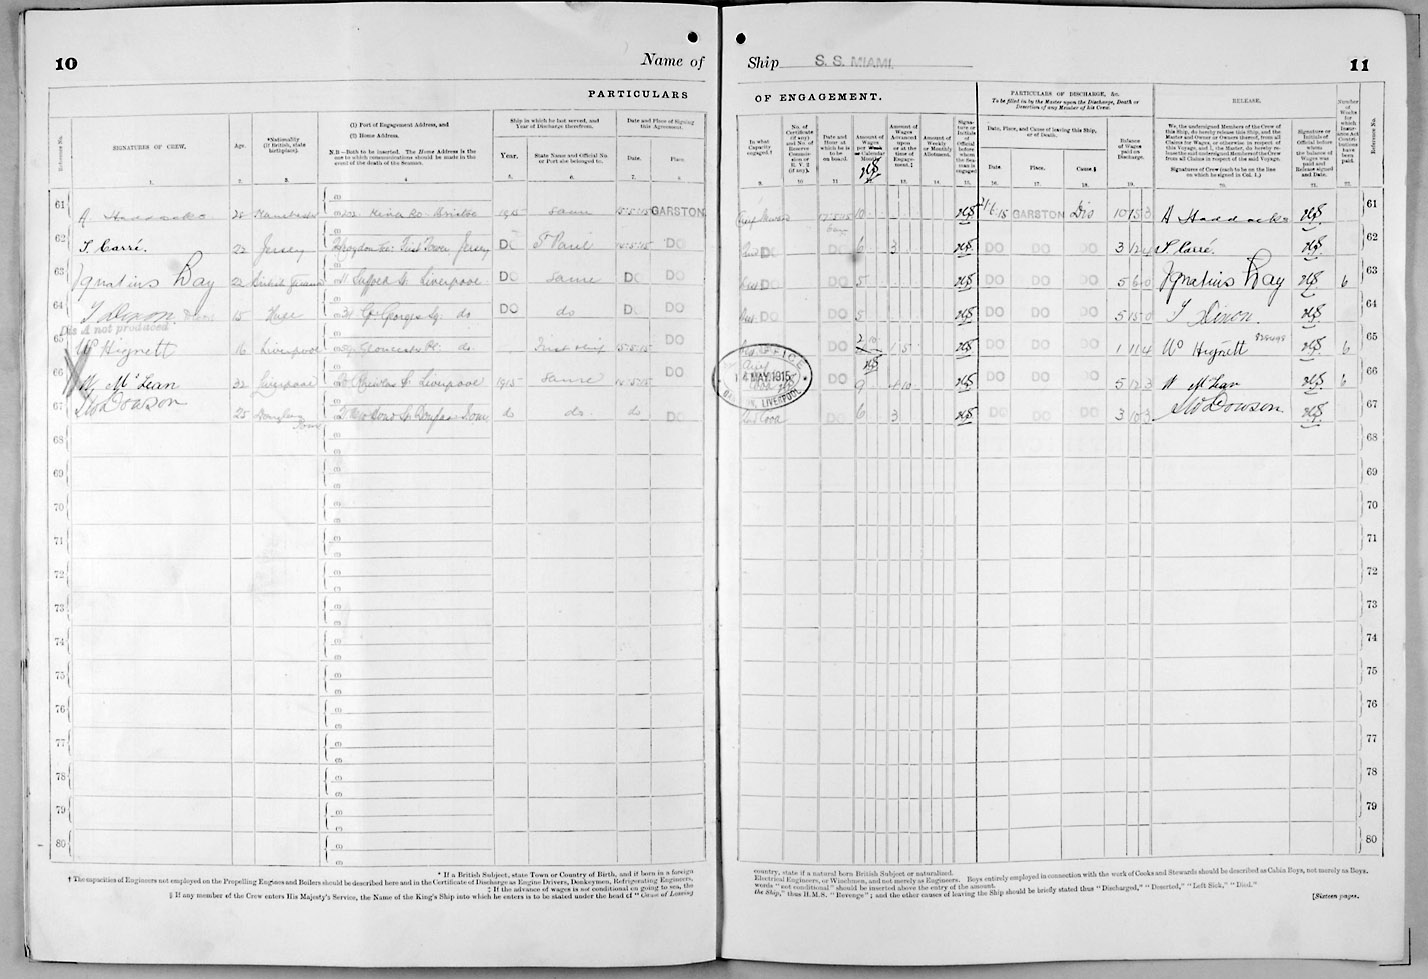 10
Name of
PARTICULARS
Reference No.
SIGNATURES OF CREW.
Age.
*Nationality
(If British, state
birthplace).
(1) Port of Engagement Address, and
(2) Home Address.
N.B—Both to be inserted. The Home Address is the
one to which communications should be made in the
event of the death of the Seaman.
Ship in which he last served, and
Year of Discharge therefrom.
Year.
State Name and Official No.
or Port she belonged to.
Date and Place of Signing
this Agreement.
Date.
Place.
1. 2. 3. 4 5. 6. 7. 8
61 A. Haddocks 28 Manchester King Rd. Bristol 1915 Same 15·5·15 GARSTON
62 S. Carré. 22 Jersey Jersey DO St Paul 15·5·15 DO
63 Ignatius Day 22 British Guiana Liverpool DO Same DO DO
64 T Dixon Dixon 15 Gt Georges Sq. do DO do DO DO
Dis A not produced
65 Wm Hignett 16 Liverpool Gloucester Pl. do. First ship 15·5·15 DO
66 W. McLean 32 Liverpool St Liverpool 1915 Same 15·5·15 DO
67 Dowson 25 Douglas do do. do DO
68
69
70
71
72
73
74
75
76
77
78
79
80
* If a British Subject, state Town or Country of Birth, and if born in a foreign
† The capacities of Engineers not employed on the Propelling Engines and Boilers should be described here and in the Certificate of Discharge as Engine Drivers, Donkeymen, Refrigerating Engineers,
‡ If the advance of wages is not conditional on going to sea, the
§ If any member of the Crew enters His Majesty's Service, the Name of the King's Ship into which he enters is to be stated under the head of "Cause of Leaving
Ship S. S. MIAMI.
11
OF ENGAGEMENT.
In what
Capacity
engaged.†
No. of
Certificate
(if any)
and No. of
Reserve
Commis-
sion or
R. V. 2
(if any).
Date and
Hour at
which he is
to be
on board.
Amount of
Wages
per Week
or Calendar
Month.
Amount of
Wages
Advanced
upon
or at the
time of
Engage-
ment.‡
Amount of
Weekly
or Monthly
Allotment.
Signa-
ture or
Initials
of
Official
before
whom
the Sea-
man is
engaged
PARTICULARS OF DISCHARGE, &c.
To be filled in by the Master upon the Discharge, Death or
Desertion of any Member of his Crew.
Date, Place, and Cause of leaving this Ship,
or of Death.
Date.
Place.
Cause.§
Balance
of Wages
paid on
Discharge.
RELEASE.
We, the undersigned Members of the Crew of
this Ship, do hereby release this Ship, and the
Master and Owner or Owners thereof, from all
Claims for Wages, or otherwise in respect of
this Voyage; and I, the Master, do hereby re-
lease the undersigned Members of the Crew
from all Claims in respect of the said Voyage.
Signatures of Crew (each to be on the line
on which he signed in Col. 1.)
Signature or
Initials of
Official before
whom
the balance of
Wages was
paid and
Release signed
and Date.
Number
of
Weeks
for
which
Insur-
ance Act
Contri-
butions
have
been
paid.
Reference No.
9. 10 11 12. 13. 14. 15. 16. 17. 18. 19. 20. 21. 22.
17·5·15 10 21/6/15 GARSTON Dis 10 15 3 A Haddocks 61
DO DO 6 3 DO DO DO 3 12 4 S Carré. 62
DO DO 5 DO DO DO 5 6 0 Ignatius Day 6 63
DO DO 5 DO DO DO 5 15 0 T Dixon. 64
DO 2 10 1 5 DO DO DO 1 11 4 Wm Hignett 6 65
9 4 10 DO DO DO 5 12 3 W McLean 6 66
Cook DO 6 3 DO DO DO 3 10 3 Dowson 67
OFFICE
14 MAY 1915
GARSTON, LIVERPOOL
68
69
70
71
72
73
74
75
76
77
78
79
80
country, state if a natural born British Subject or naturalised.
Electrical Engineers, or Winchmen, and not merely as Engineers. Boys entirely employed in connection with the work of Cooks and Stewards should be described as Cabin Boys, not merely as Boys.
words "not conditional" should be inserted above the entry of the amount.
the Ship," thus H.M.S. "Revenge"; and the other causes of leaving the Ship should be briefly stated thus "Discharged," "Deserted," "Left Sick," "Died."
[Sixteen pages.